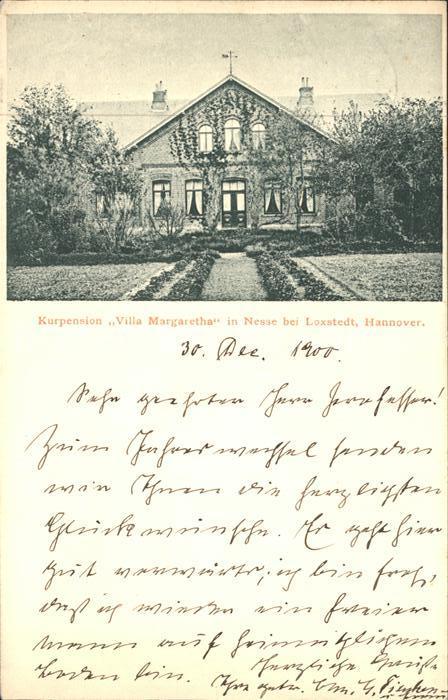 Kurpension „Villa Margaretha“ in Nesse bei Loxstedt, Hannover.
30. Dec. 1900.
Sehr geehrter Herr Professor!
Zum Jahreswechsel senden
wir Ihnen die herzlichsten
Glückwünsche. Es geht hier
gut vorwärts, ich bin froh,
daß ich wieder ein freier
Mann auf heimathlichem
Boden bin. Herzliche Grüße
Ihre